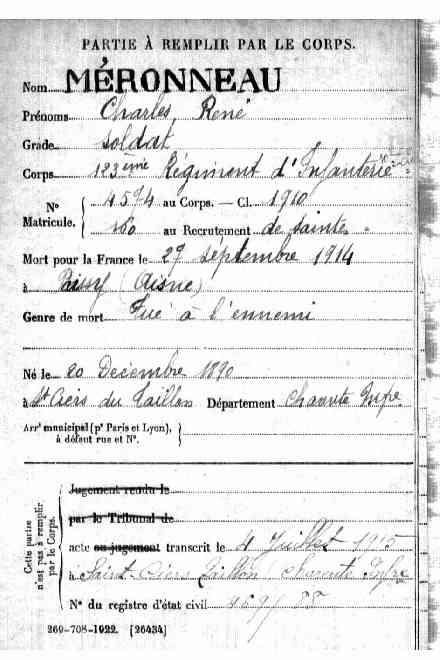 PARTIE À REMPLIR PAR LE CORPS.
Nom MÉRONNEAU
Prénoms Charles René
Grade Soldat
Corps 123ème Régiment d'Infanterie
N° Matricule. { 4574 au Corps. — Cl. 1910
160 au Recrutement de Saintes
Mort pour la France le 27 Septembre 1914
à Paissy (Aisne)
Genre de mort Tué à l'ennemi
Né le 20 Décembre 1890
à St Ciers du Taillon Département Charente Infre
Arrt municipal (pr Paris et Lyon), à défaut rue et N°. }
Cette partie n'est pas à remplir par le Corps.
Jugement rendu le
par le Tribunal de
acte ou jugement transcrit le 4 Juillet 1915
à Saint-Ciers Taillon (Charente Infre
N° du registre d'état civil
269-708-1922. [26434]